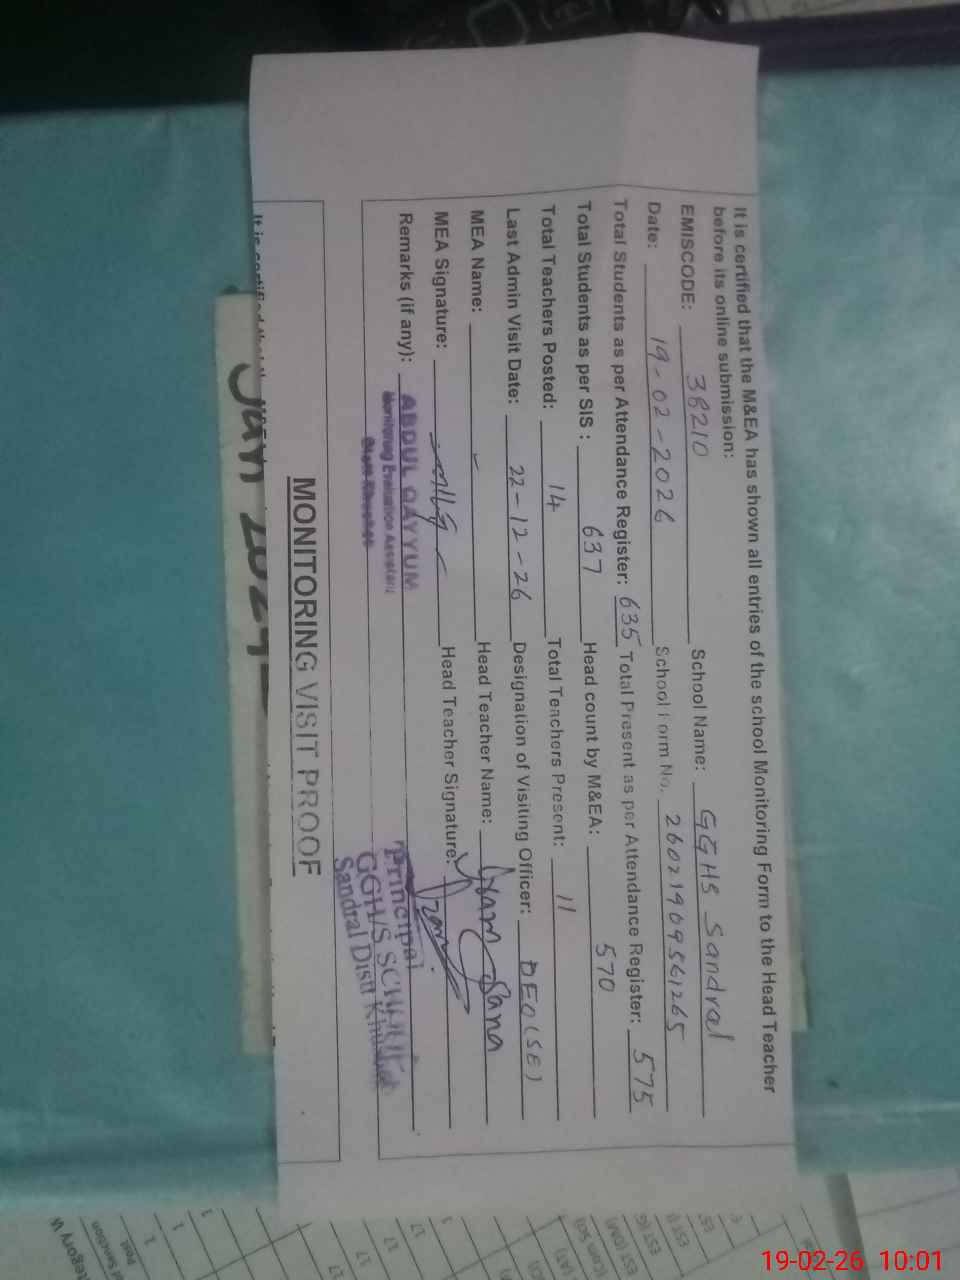 It is certified that the M&EA has shown all entries of the school Monitoring Form to the Head Teacher
before its online submission:
EMISCODE: 38210 School Name: GGHS Sandral
Date: 19-02-2026 School Form No. 26021909561265
Total Students as per Attendance Register: 635 Total Present as per Attendance Register: 575
Total Students as per SIS: 637 Head count by M&EA: 570
Total Teachers Posted: 14 Total Teachers Present: 11
Last Admin Visit Date: 22-12-26 Designation of Visiting Officer: DEO(SE)
MEA Name: Head Teacher Name:
MEA Signature: Head Teacher Signature:
Remarks (if any):
ABDUL QAYYUM
Monitoring Evaluation Assistant
Distt. Khushab
Principal
GGH/S SCHOOL
Sandral Distt Khushab
MONITORING VISIT PROOF
It is certified that the
Jan
19-02-26 10:01